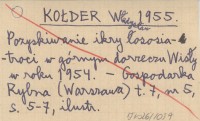 KOŁDER Władysław 1955.
Pozyskiwanie ikry łososia-
troci w górnym dorzeczu Wisły
w roku 1954. - Gospodarka
Rybna (Warszawa) t. 7, nr 5,
s. 5-7, ilustr.